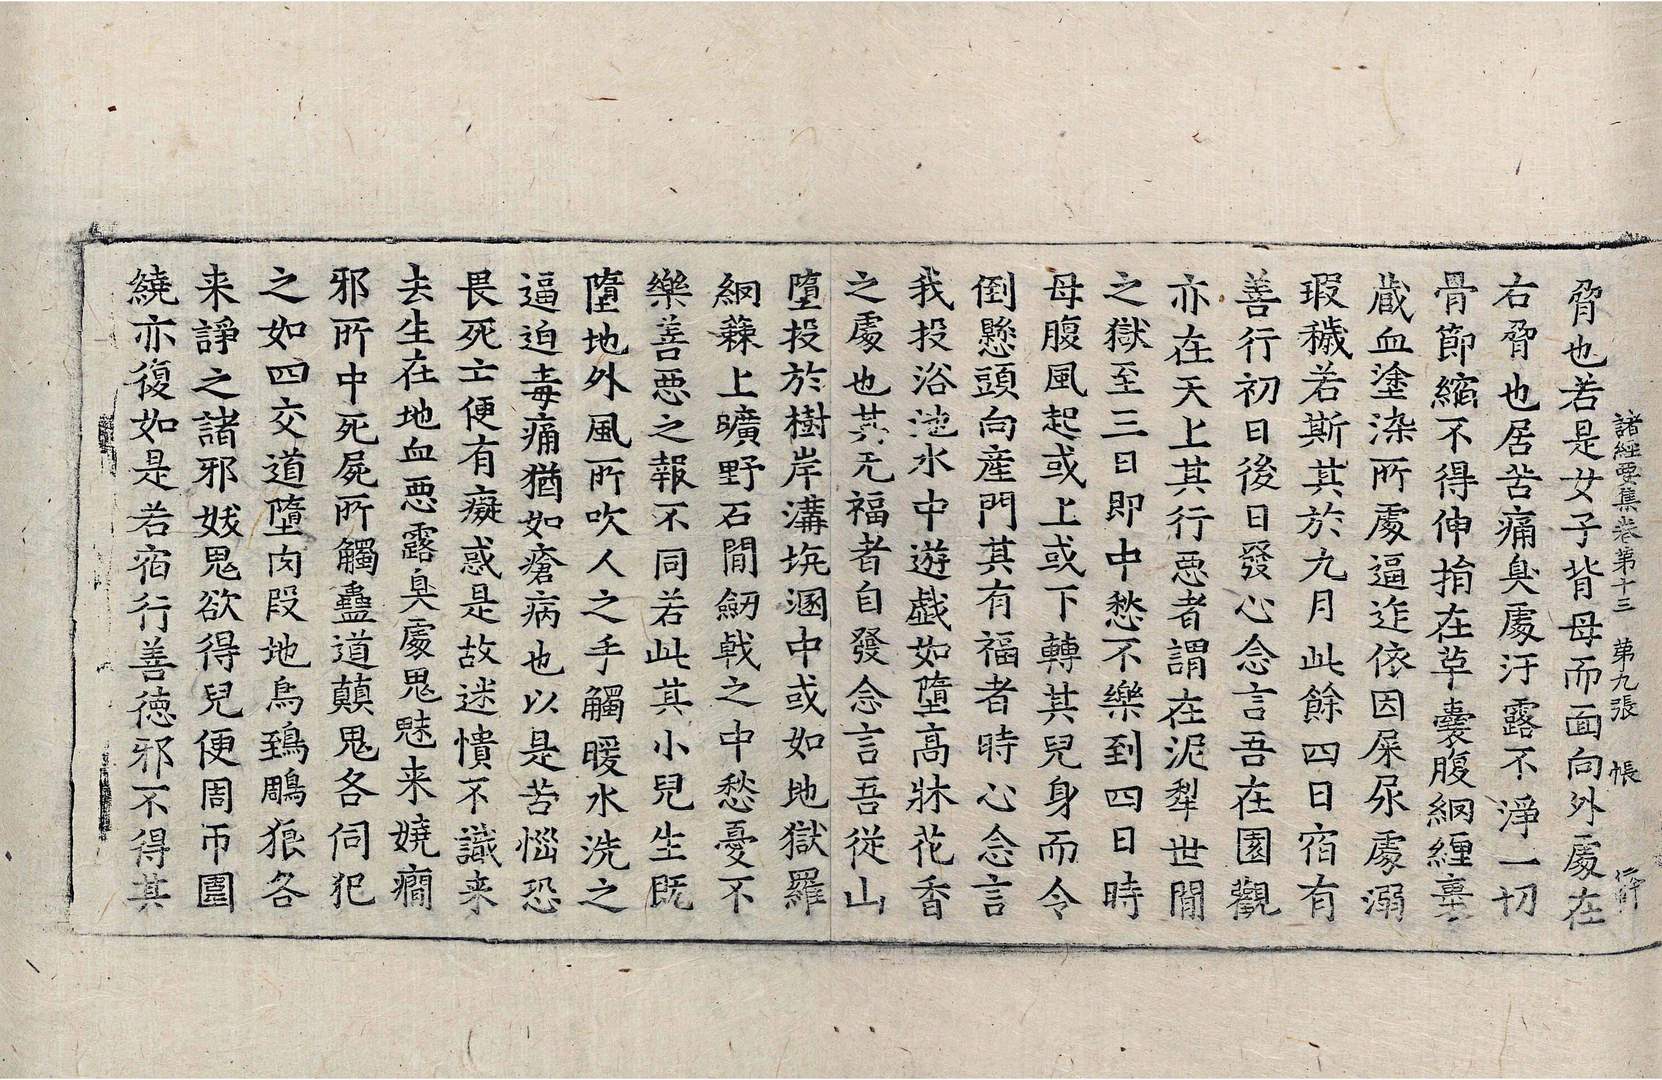 諸經要集卷第十三 第九張 帳
脅也若是女子背母而面向外處在
右脅也居苦痛臭處汙露不淨一切
骨節縮不得伸捐在草囊腹網纏裹
藏血塗染所處逼迮依因屎尿處溺
瑕穢若斯其於九月此餘四日宿有
善行初日後日發心念言吾在園觀
亦在天上其行惡者謂在泥犁世間
之獄至三日即中愁不樂到四日時
母腹風起或上或下轉其兒身而令
倒懸頭向產門其有福者時心念言
我投浴池水中遊戲如墮高牀花香
之處也其无福者自發念言吾從山
墮投於樹岸溝坑溷中或如地獄羅
網蕀上曠野石間劒戟之中愁憂不
樂善惡之報不同若此其小兒生既
墮地外風所吹人之手觸暖水洗之
逼迫毒痛猶如瘡病也以是苦惱恐
畏死亡便有癡惑是故迷憒不識来
去生在地血惡露臭處鬼魅来嬈癇
邪所中死屍所觸蠱道顛鬼各伺犯
之如四交道墮肉段地烏鵄鵰狼各
来諍之諸邪妭鬼欲得兒便周帀圍
繞亦復如是若宿行善德邪不得其